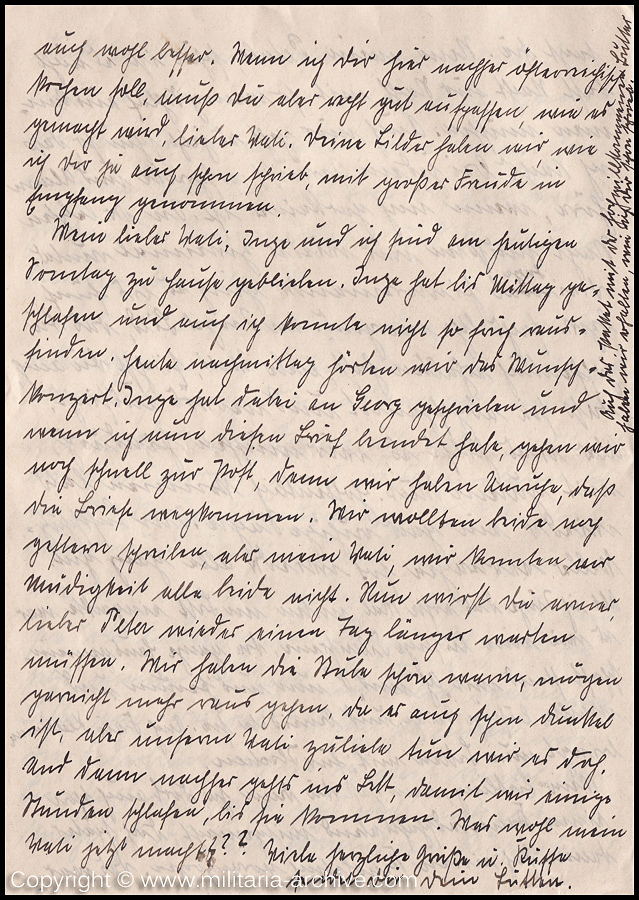 auch wohl besser. Wenn ich Dir hier nachher österreichisch
kochen soll, mußt Du aber recht gut aufpassen wie es
gemacht wird, lieber Vati. Deine Bilder haben wir, wie
ich Dir ja auch schon schrieb, mit großer Freude in
Empfang genommen.
Mein lieber Vati, Inge und ich sind am heutigen
Sonntag zu Hause geblieben. Inge hat bis Mittag ge-
schlafen und auch ich konnte nicht so früh raus-
finden. Heute nachmittag hörten wir das Wunsch-
konzert. Inge hat dabei an Georg geschrieben und
wenn ich nun diesen Brief beendet habe, gehen wir
noch schnell zur Post, denn wir haben Unruhe, daß
die Briefe wegkommen. Wir wollten beide noch
gestern schreiben, aber mein Vati, wir konnten vor
Müdigkeit alle beide nicht. Nun wirst Du armer,
lieber Peter wieder einen Tag länger warten
müssen. Wir haben die Stube schön warm, mögen
garnicht mehr raus gehen, da es auch schon dunkel
ist, aber unserm Vati zuliebe tun wir es doch.
Und dann nachher gehts ins Bett, damit wir einige
Stunden schlafen, bis sie kommen. Was wohl mein
Vati jetzt macht??? Viele herzliche Grüße u. Küsse
sendet Dir Dein
Auch das Paket mit der
haben wir erhalten, was ich Dir schon schrieb
Copyright © www.militaria-archive.com